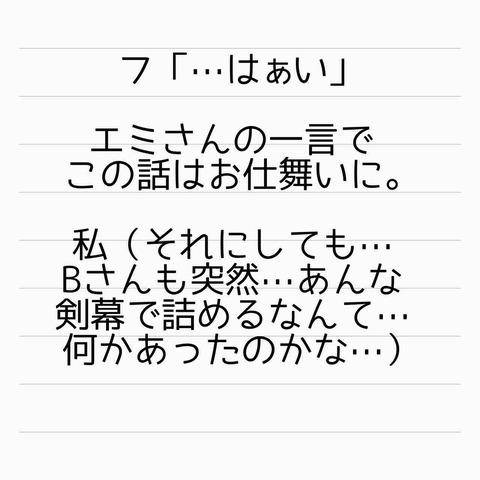 フ「…はぁい」
エミさんの一言で
この話はお仕舞いに。
私（それにしても…
Bさんも突然…あんな
剣幕で詰めるなんて…
何かあったのかな…）